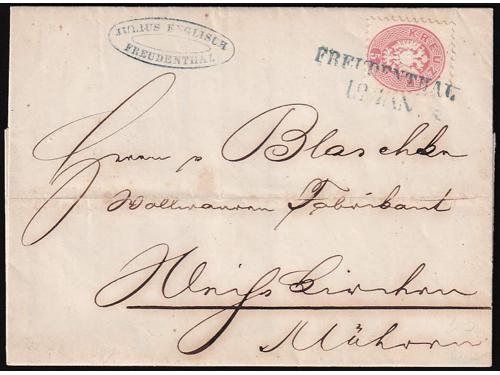 JULIUS ENGLISCH
FREUDENTHAL
KREUZ
FREUDENTHAL
19 JAN
Herrn Blaschke
Wollwaaren Fabrikant
Weisskirchen
Mähren